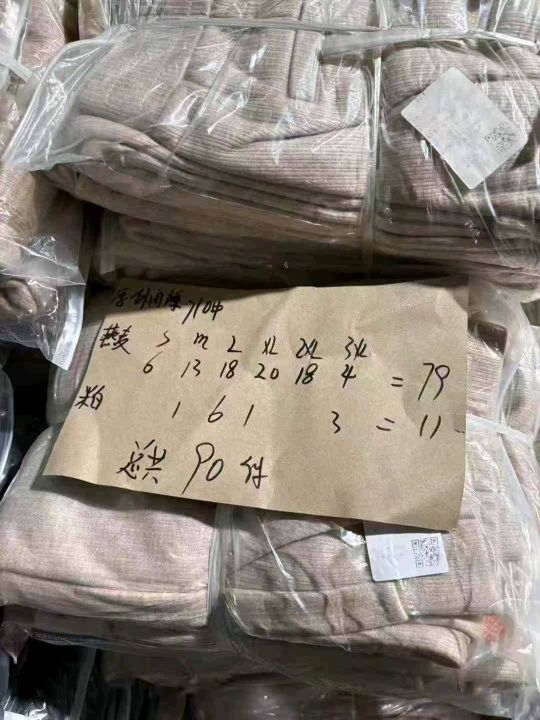 燕麦 S M L XL 2XL 3XL
6 13 18 20 18 4 = 79
米白 1 6 1 3 = 11
总共 90 件